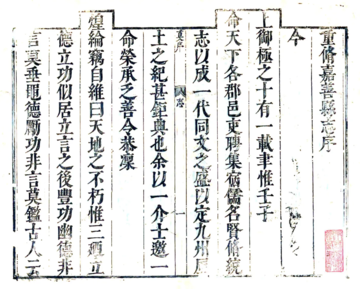 重脩嘉善縣志序
今
上御極之十有一載聿惟壬子
命天下各郡邑吏聘集宿儒名賢脩統
志以成一代同文之盛以定九州風
土之紀甚鉅典也余以一介士邀一
命榮承乏善令恭稟
煌綸竊自維曰天地之不朽惟三曰立
德立功似居立言之後豐功幽德非
言莫垂黽德勵功非言莫鑑古人云